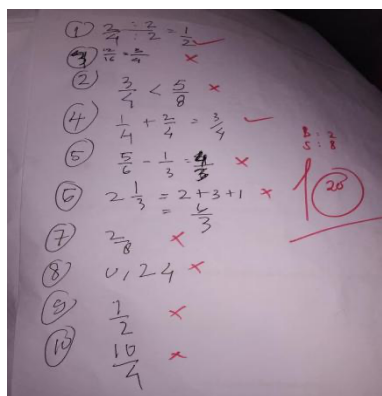 ① 2/4 ÷2/÷2 = 1/2 ✓
③ 12/16 = 3/4 ×
② 3/4 < 5/8 ×
④ 1/4 + 2/4 = 3/4 ✓
B : 2
S : 8
⑤ 5/6 - 1/3 = 4/3 ×
20
⑥ 2 1/3 = 2 + 3 + 1 ×
= 6/3
⑦ 2/8 ×
⑧ 0,24 ×
⑨ 1/2 ×
⑩ 10/4 ×